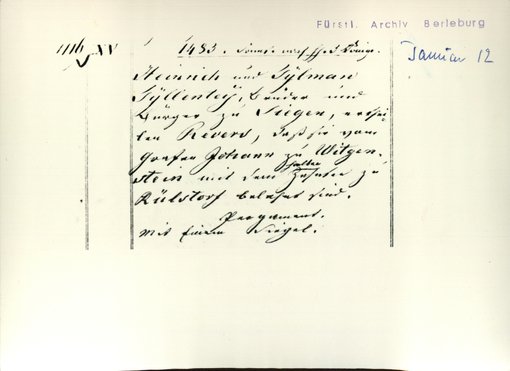 Fürstl. Archiv Berleburg
Januar 12
XV
1483. Sonnt. nach hl. 3 König.
Heinrich und Tylman
Tyllentey, Brüder und
Bürger zu Siegen, erthei-
len Revers, daß sie vom
Grafen Johann zu Witgen-
stein mit dem halben Zehnten zu
Rülstorf belehnt sind.
Pergament.
Mit einem Siegel.